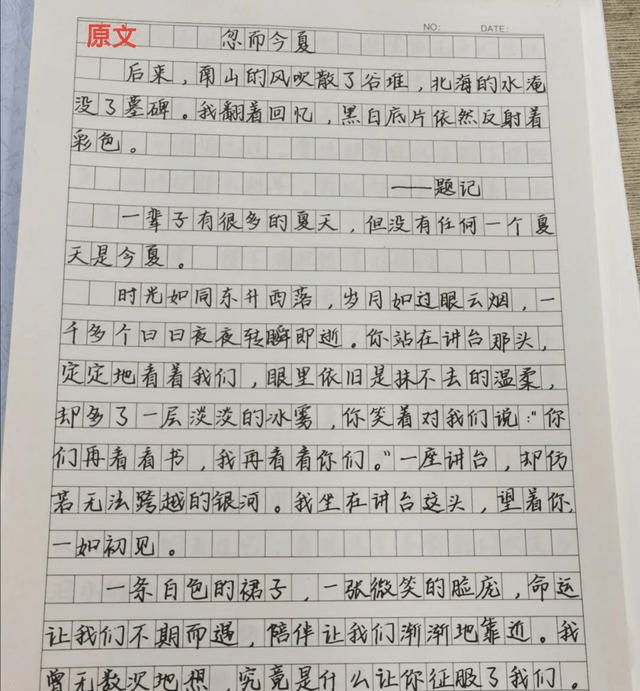 原文
NO: DATE:
忽而今夏
后来，南山的风吹散了谷堆，北海的水淹
没了墓碑。我翻着回忆，黑白底片依然反射着
彩色。
——题记
一辈子有很多的夏天，但没有任何一个夏
天是今夏。
时光如同东升西落，岁月如过眼云烟，一
千多个日日夜夜转瞬即逝。你站在讲台那头，
定定地看着我们，眼里依旧是抹不去的温柔，
却多了一层淡淡的冰雾，你笑着对我们说："你
们再看看书，我再看看你们。"一座讲台，却仿
若无法跨越的银河。我坐在讲台这头，望着你，
一如初见。
一条白色的裙子，一张微笑的脸庞，命运
让我们不期而遇，陪伴让我们渐渐地靠近。我
曾无数次地想，究竟是什么让你征服了我们。